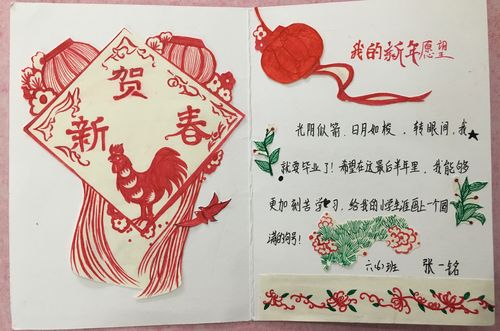 贺
新 春
我的新年愿望
光阴似箭、日月如梭,转眼间,我
就要毕业了!希望在这最后半年里,我能够
更加刻苦学习,给我的小学生涯画上一个圆
满的句号!
六(6)班 张一铭